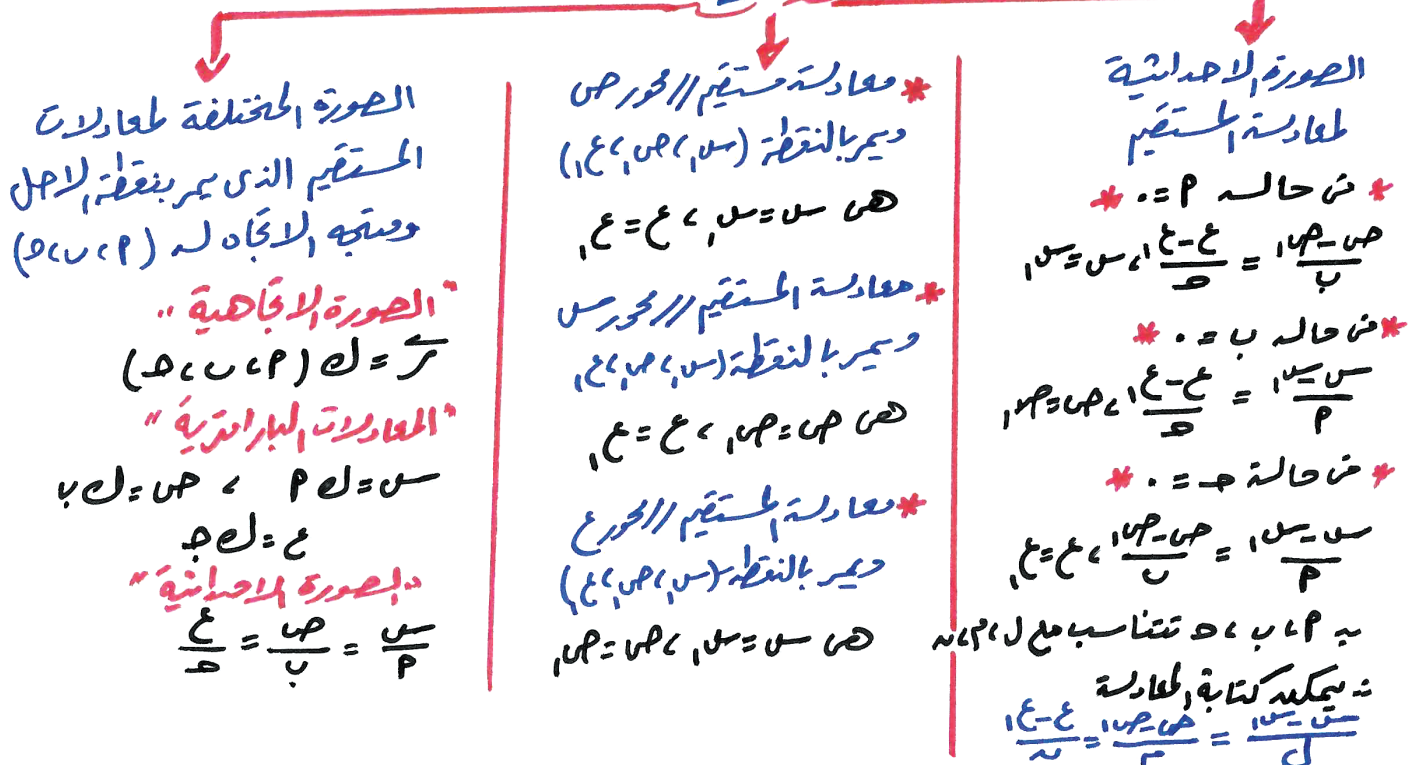 الصورة الاحداثية
لمعادلة المستقيم
* فى حالة أ = ٠ *
(ص - ص١)/ب = (ع - ع١)/جـ ، س = س١
* فى حالة ب = ٠ *
(س - س١)/أ = (ع - ع١)/جـ ، ص = ص١
* فى حالة جـ = ٠ *
(س - س١)/أ = (ص - ص١)/ب ، ع = ع١
∵ أ ، ب ، جـ تتناسب مع ل ، م ، ن
∴ يمكن كتابة المعادلة
(س - س١)/ل = (ص - ص١)/م = (ع - ع١)/ن
* معادلة مستقيم // محور ص
ويمر بالنقطة (س١ ، ص١ ، ع١)
هى س = س١ ، ع = ع١
* معادلة المستقيم // محور س
ويمر بالنقطة (س١ ، ص١ ، ع١)
هى ص = ص١ ، ع = ع١
* معادلة المستقيم // محور ع
ويمر بالنقطة (س١ ، ص١ ، ع١)
هى س = س١ ، ص = ص١
الصورة المختلفة لمعادلات
المستقيم الذى يمر بنقطة الاصل
ومتجه الاتجاه له (أ ، ب ، جـ)
"الصورة الاتجاهية"
ر = ك (أ ، ب ، جـ)
"المعادلات البارامترية"
س = ك أ ، ص = ك ب
ع = ك جـ
"الصورة الاحداثية"
س/أ = ص/ب = ع/جـ